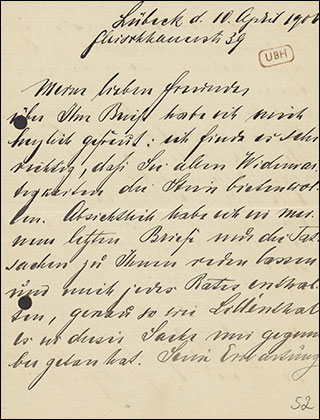 Lübeck d. 10. April 190
Fleischhauerstr 39
UBH
Meine lieben Freunde,
über Ihre Briefe habe ich mich
herzlich gefreut: ich finde es sehr
richtig, daß Sie allen Widerwär-
tigkeiten die Stirn bieten woll-
en. Absichtlich habe ich in mei-
nem letzten Briefe nur die Tat-
sachen zu Ihnen reden lassen
und mich jedes Rates enthal-
ten, genau so wie Lilienthal
es in dieser Sache mir gegenü-
ber getan hat. Seine Erwartung
52